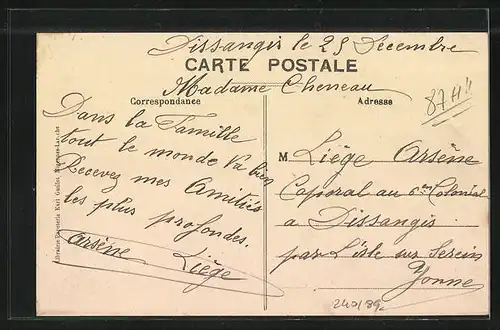 Dissangis le 25 Décembre
CARTE POSTALE
Madame Cheneau
Correspondance
Adresse
87H!!
Dans la Famille
tout le monde va bien
Recevez mes Amitiés
les plus profondes.
Arsène Liège
M Liège Arsène
Caporal au 6em Colonial
a Dissangis
par l'Isle sur Serein
Yonne
Librairie Papeterie